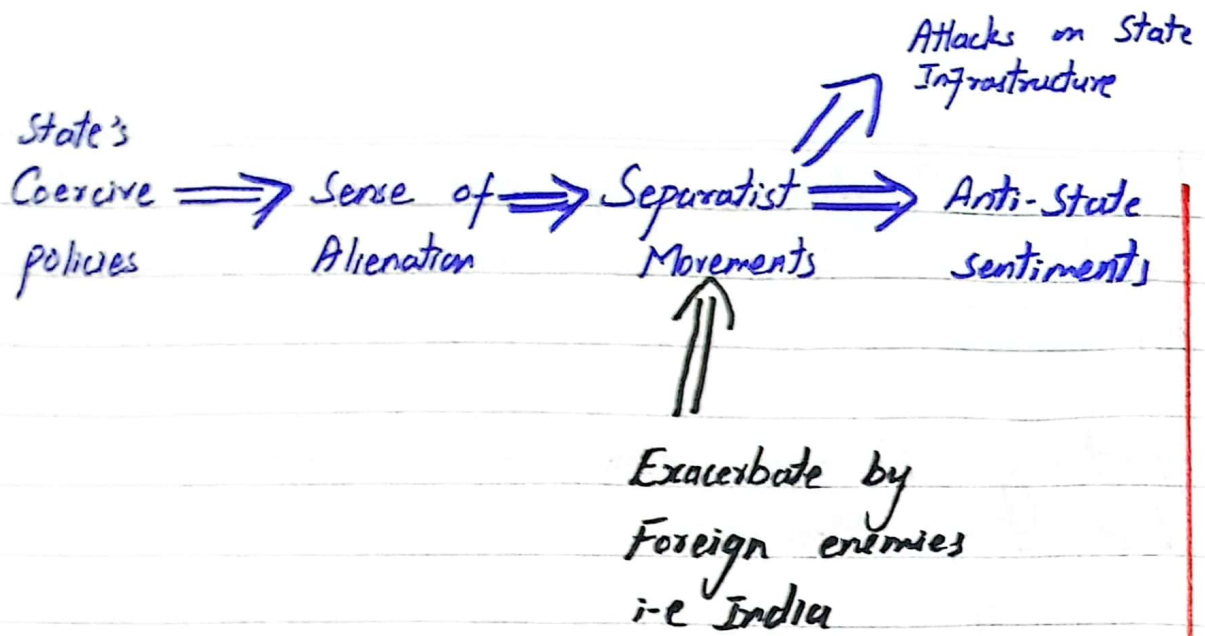 Attacks on State
Infrastructure
State's
Coercive
policies
Sense of
Alienation
Separatist
Movements
Anti-State
sentiments
Exacerbate by
Foreign enemies
i-e India